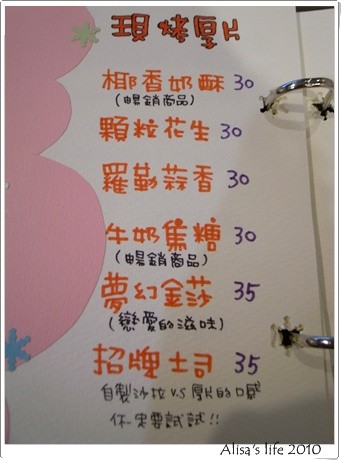 現烤厚片
椰香奶酥 30
(暢銷商品)
顆粒花生 30
羅勒蒜香 30
牛奶焦糖 30
(暢銷商品)
夢幻金莎 35
(戀愛的滋味)
招牌土司 35
自製沙拉 v.s 厚片的口感
你一定要試試!!
Alisa's life 2010